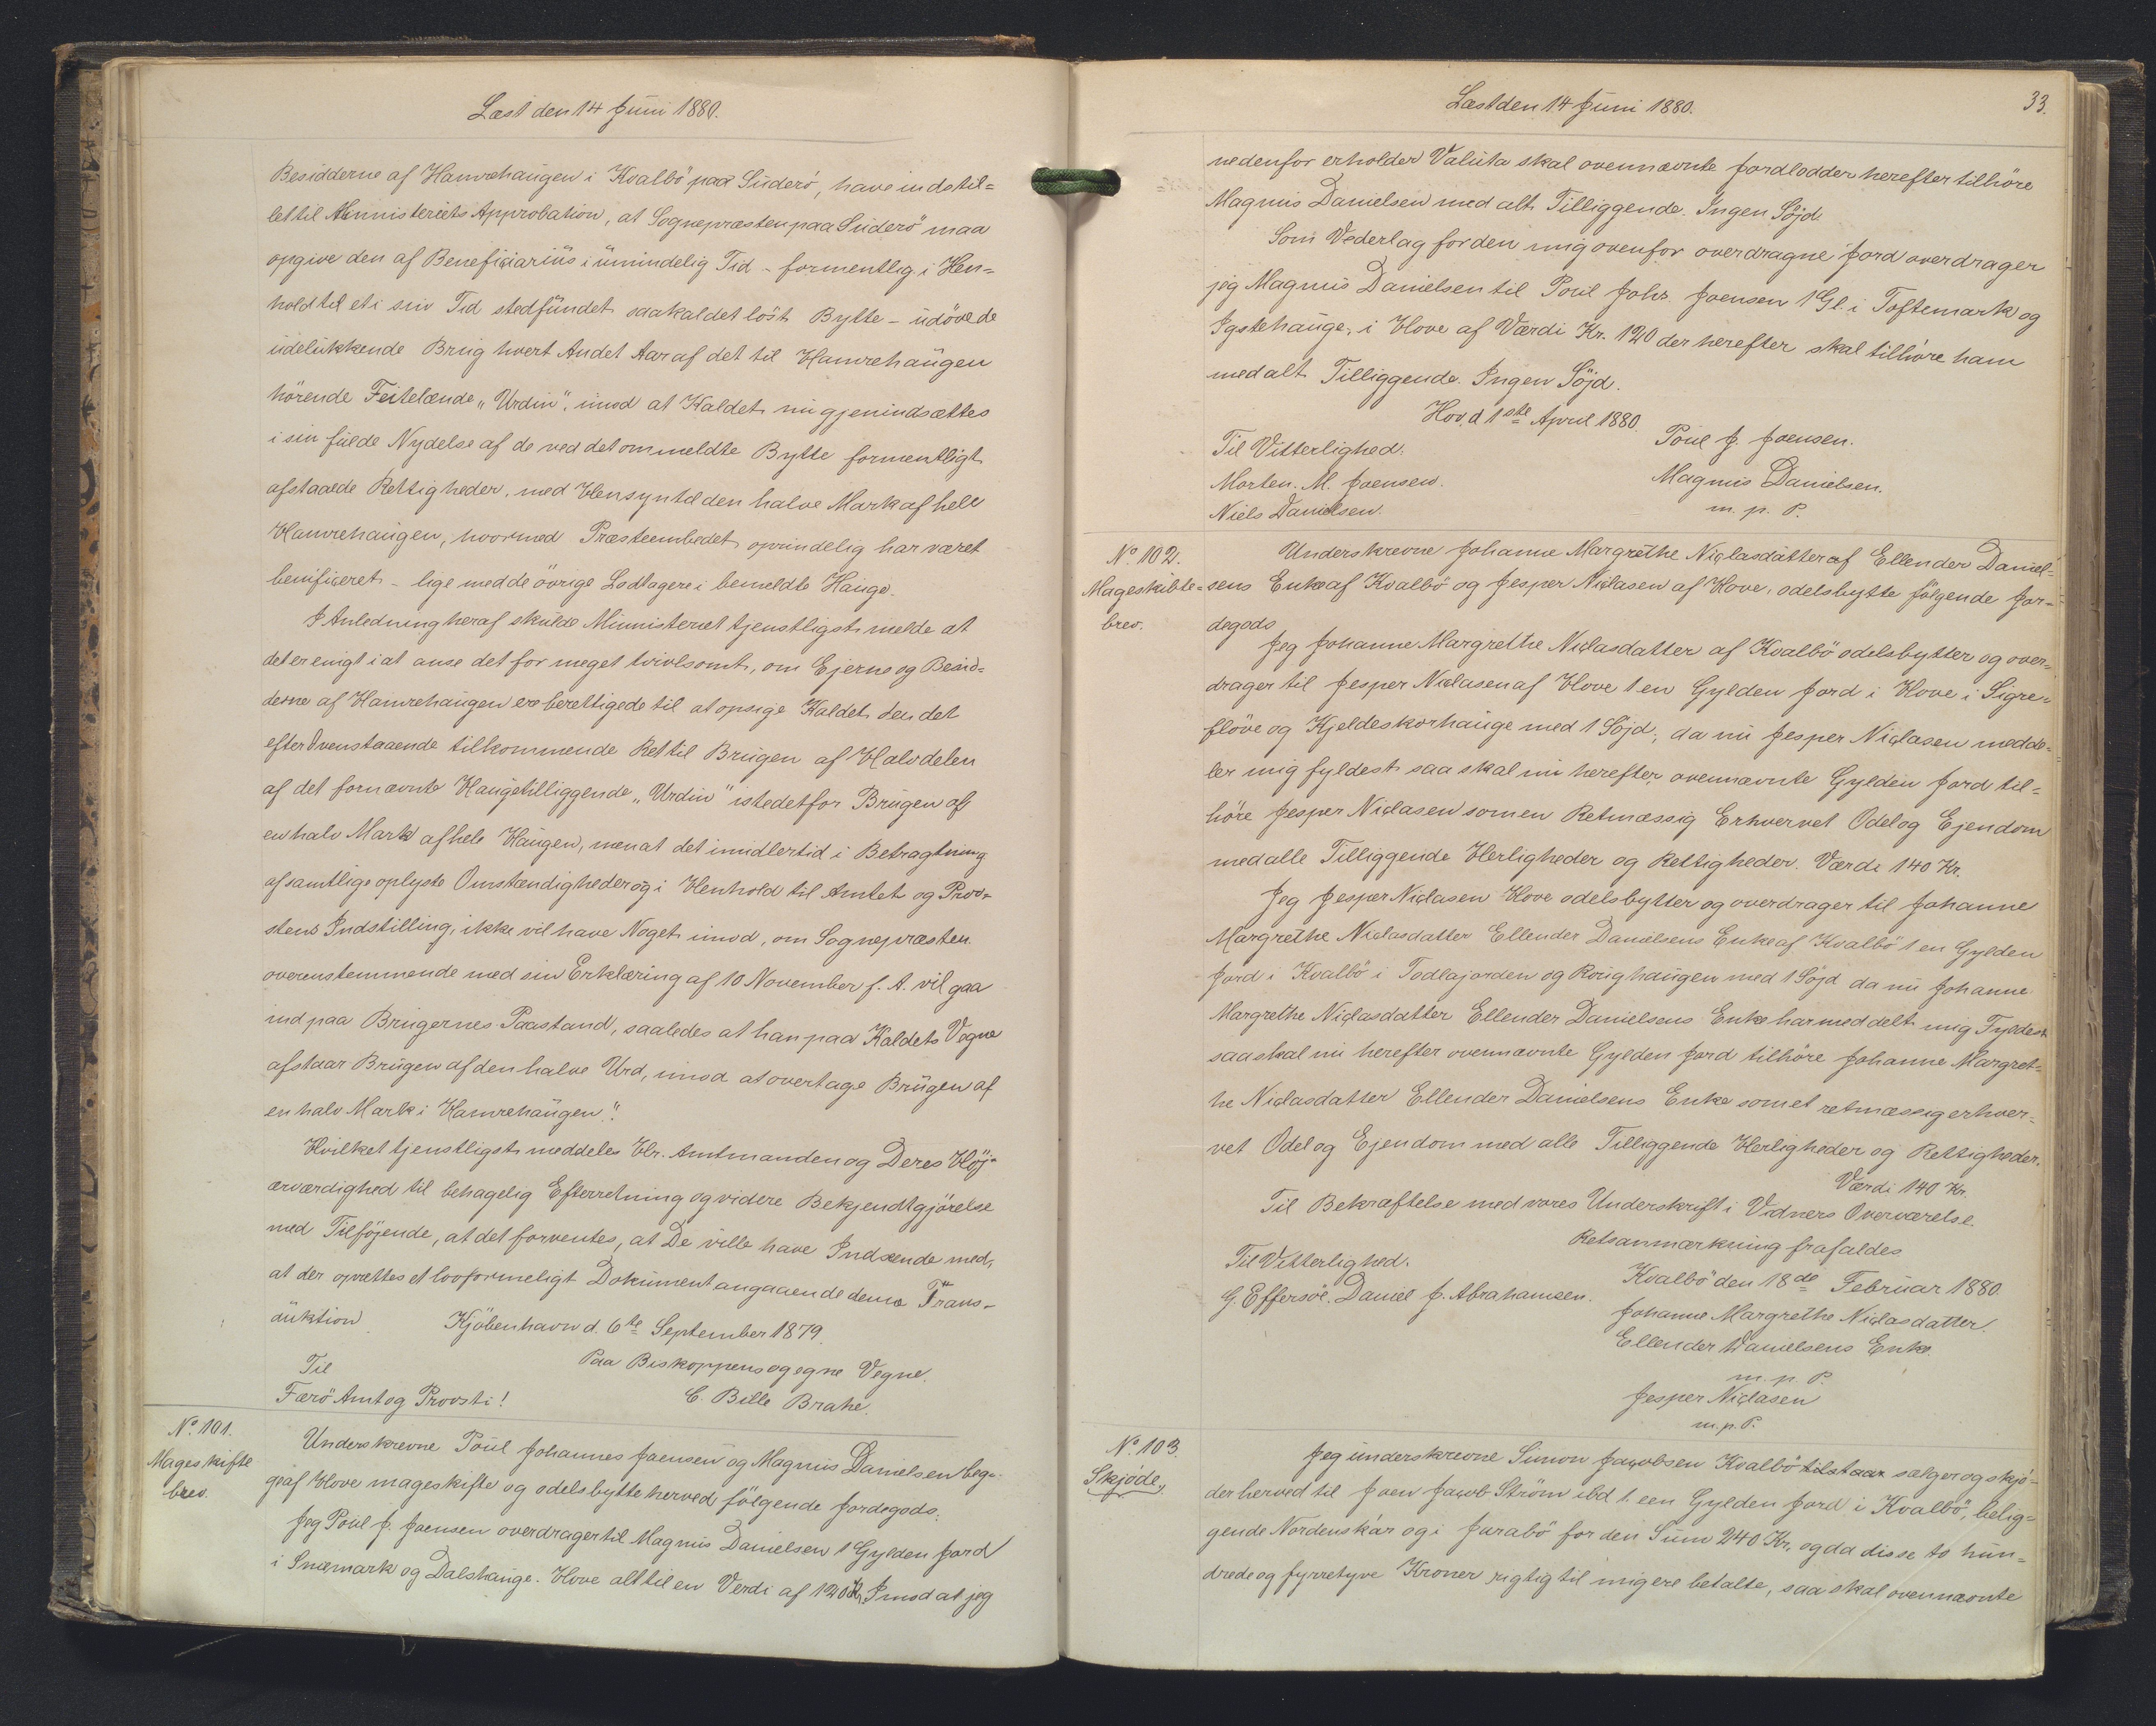 Læst den 14 Juni 1880.
Besidderne af Hamrehaugen i Kvalbö paa Süderö, have indstil=
let til Ministeriets Approbation, at Sognepræsten paa Süderö maa
opgive den af Beneficiariüs i ümindelig Tid - formentlig i Hen=
hold til et i sin Tid stedfündet saakaldet löst Bytte - üdövede
üdelükkende Brüg hvert Andet Aar af det til Hamrehaügen
hörende Feitelænde „Urdin", imod at Kaldet nü gjenindsættes
i sin fülde Nydelse af de ved det ommeldte Bytte formentligt
afstaaede Rettigheder, med Hensyn til den halve Mark af hele
Hamrehaügen, hvormed Præsteembedet oprindelig har været
benificeret - lige med de övrige Lodtagere i bemeldte Haüge.
I Anledning heraf skülde Ministeriet tjenstligst melde at
det er enigt i at anse det for meget tvivlsomt, om Ejerne og Besid=
derne af Hamrehaügen ere berettigede til at opsige Kaldet den det
efter Ovenstaaende tilkommende Ret til Brügen af Halvdelen
af det fornævnte Haügetilliggende „Urdin" istedetfor Brügen af
en halv Mark af hele Haügen, men at det imidlertid i Betragtning
af samtlige oplyste Omstændigheder og i Henhold til Amtets og Prov=
stens Indstilling, ikke vil have Noget imod, om Sognepræsten
overenstemmende med sin Erklæring af 10 November f. A. vil gaa
ind paa Brügernes Paastand, saaledes at han paa Kaldets Vegne
afstaar Brügen af den halve Urd, imod at overtage Brügen af
en halv Mark i Hamrehaügen".
Hvilket tjenstligst meddeles Hr. Amtmanden og Deres Höj=
ærværdighed til behagelig Efterretning og videre Bekjendtgjörelse
med Tilföjende, at det forventes, at De ville have Indseende med,
at der oprettes et lovformeligt Dokument angaaende denne Trans=
aüktion Kjöbenhavn d. 6te September 1879.
Til Paa Biskoppens og egne Vegne.
Færö Amt og Provsti! C. Bille Brahe.
No. 101.
Mageskifte
brev.
Underskrevne Poül Johannes Joensen og Magnüs Danielsen beg=
ge af Hove mageskifte og odelsbytte herved fölgende Jordegods.
Jeg Poül J. Joensen overdrager til Magnüs Danielsen 1 Gylden Jord
i Snemark og Dalshaüge. Hove alt til en Verdi af 120 Kr. Imod at jeg
Læst den 14 Juni 1880. 33.
nedenfor erholder Valüta skal ovennævnte Jordlodder herefter tilhöre
Magnüs Danielsen med alt Tilliggende. Ingen Söjd
Som Vederlag for den mig ovenfor overdragne Jord overdrager
jeg Magnüs Danielsen til Poül Johs. Joensen 1 Gl. i Toftemark og
Igstehaüge, i Hove af Værdi Kr. 120 der herefter skal tilhöre ham
med alt Tilliggende. Ingen Söjd.
Hov, d 1ste April 1880.
Til Vitterlighed. Poül J. Joensen.
Morten. M. Joensen. Magnüs Danielsen.
Niels Danielsen. m. p. P.
No. 102.
Mageskifte=
brev.
Underskrevne Johanne Margrethe Niclasdatter af Ellender Daniel=
sens Enke af Kvalbö og Jesper Niclasen af Hove, odelsbytte fölgende Jor=
degods
Jeg Johanne Margrethe Niclasdatter af Kvalbö odelsbytter og over=
drager til Jesper Niclasen af Hove 1 en Gylden Jord i Hove i Sigre=
flöve og Kjeldeskorhaüge med 1 Söjd, da nü Jesper Niclasen medde=
ler mig fyldest saa skal nü herefter ovennævnte Gylden Jord til=
höre Jesper Niclasen som en Retmæssig Erhvervet Odel og Ejendom
med alle Tilliggende Herligheder og Rettigheder. Værdi 140 Kr.
Jeg Jesper Niclasen Hove odelsbytter og overdrager til Johanne
Margrethe Niclasdatter Ellender Danielsens Enke af Kvalbö 1 en Gylden
Jord i Kvalbö i Todlajorden og Roüghaügen med 1 Söjd da nü Johanne
Margrethe Niclasdatter Ellender Danielsens Enke har meddelt mig Fyldest
saa skal nü herefter ovennævnte Gylden Jord tilhöre Johanne Margret=
he Niclasdatter Ellender Danielsens Enke som et retmæssig erhver=
vet Odel og Ejendom med alle Tilliggende Herligheder og Rettigheder.
Værdi 140 Kr.
Til Bekræftelse med vores Underskrift i Vidners Overværelse.
Retsanmærkning frafaldes
Til Vitterlighed. Kvalbö den 18de Februar 1880.
G. Effersöe. Daniel J. Abrahamsen. Johanne Margrethe Niclasdatter.
Ellender Danielsens Enke.
m. p. P.
Jesper Niclasen
m. p. P.
No. 103.
Skjöde.
Jeg ünderskrevne Simon Jacobsen Kvalbö tilstaar sælger og skjö=
der herved til Joen Jacob Ström ibd 1. een Gylden Jord i Kvalbö, belig=
gende Nordenskár og i Jarabö for den Süm 240 Kr. og da disse to hün=
drede og fyrretyve Kroner rigtig til mig ere betalte, saa skal ovennævnte